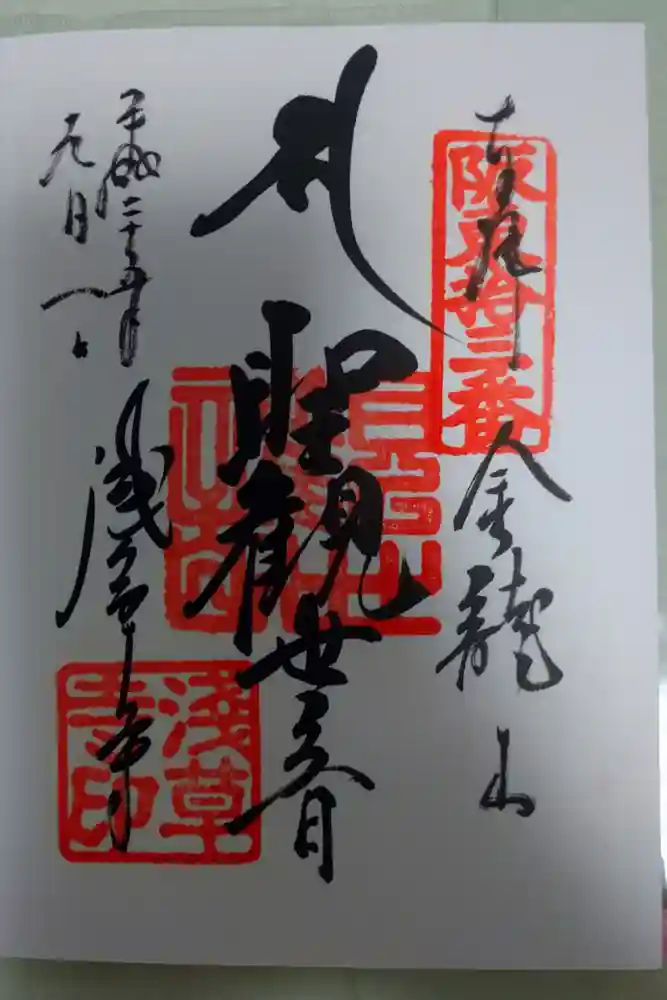 奉拝
阪東拾三番
金龍山
聖観世音
平成二十五年
元月一日
浅草寺
浅草
寺印